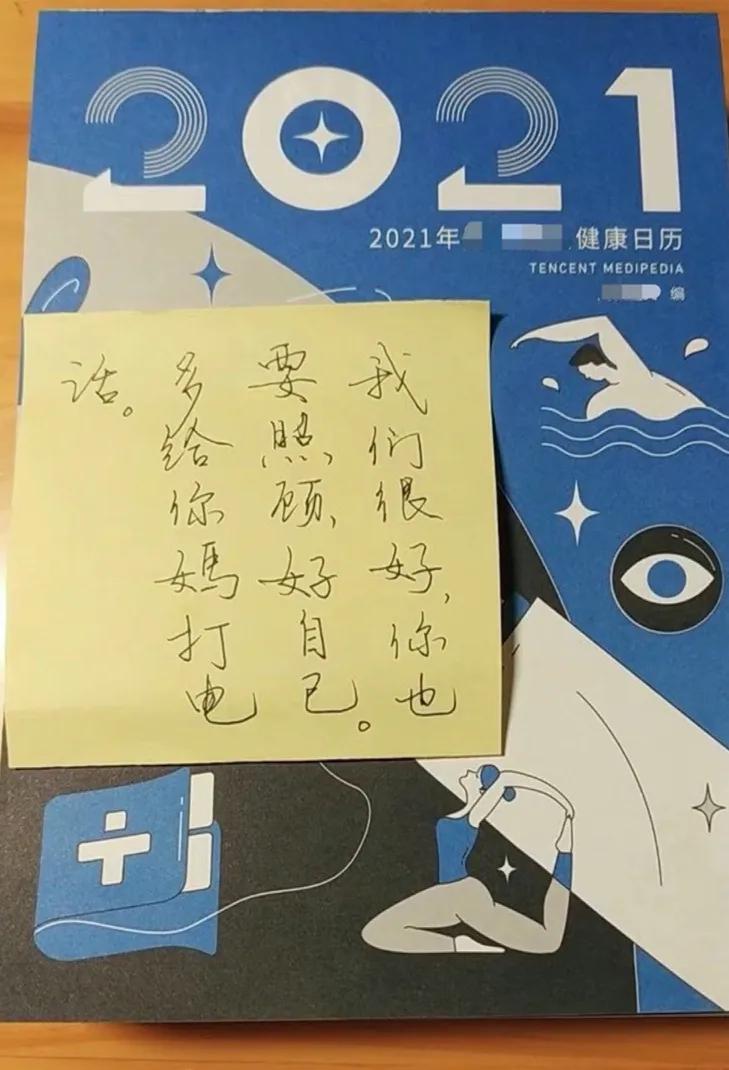 2021
2021年
健康日历
TENCENT MEDIPEDIA
编
我们很好，你也
要照顾好自己。
多给你媽打电
话。